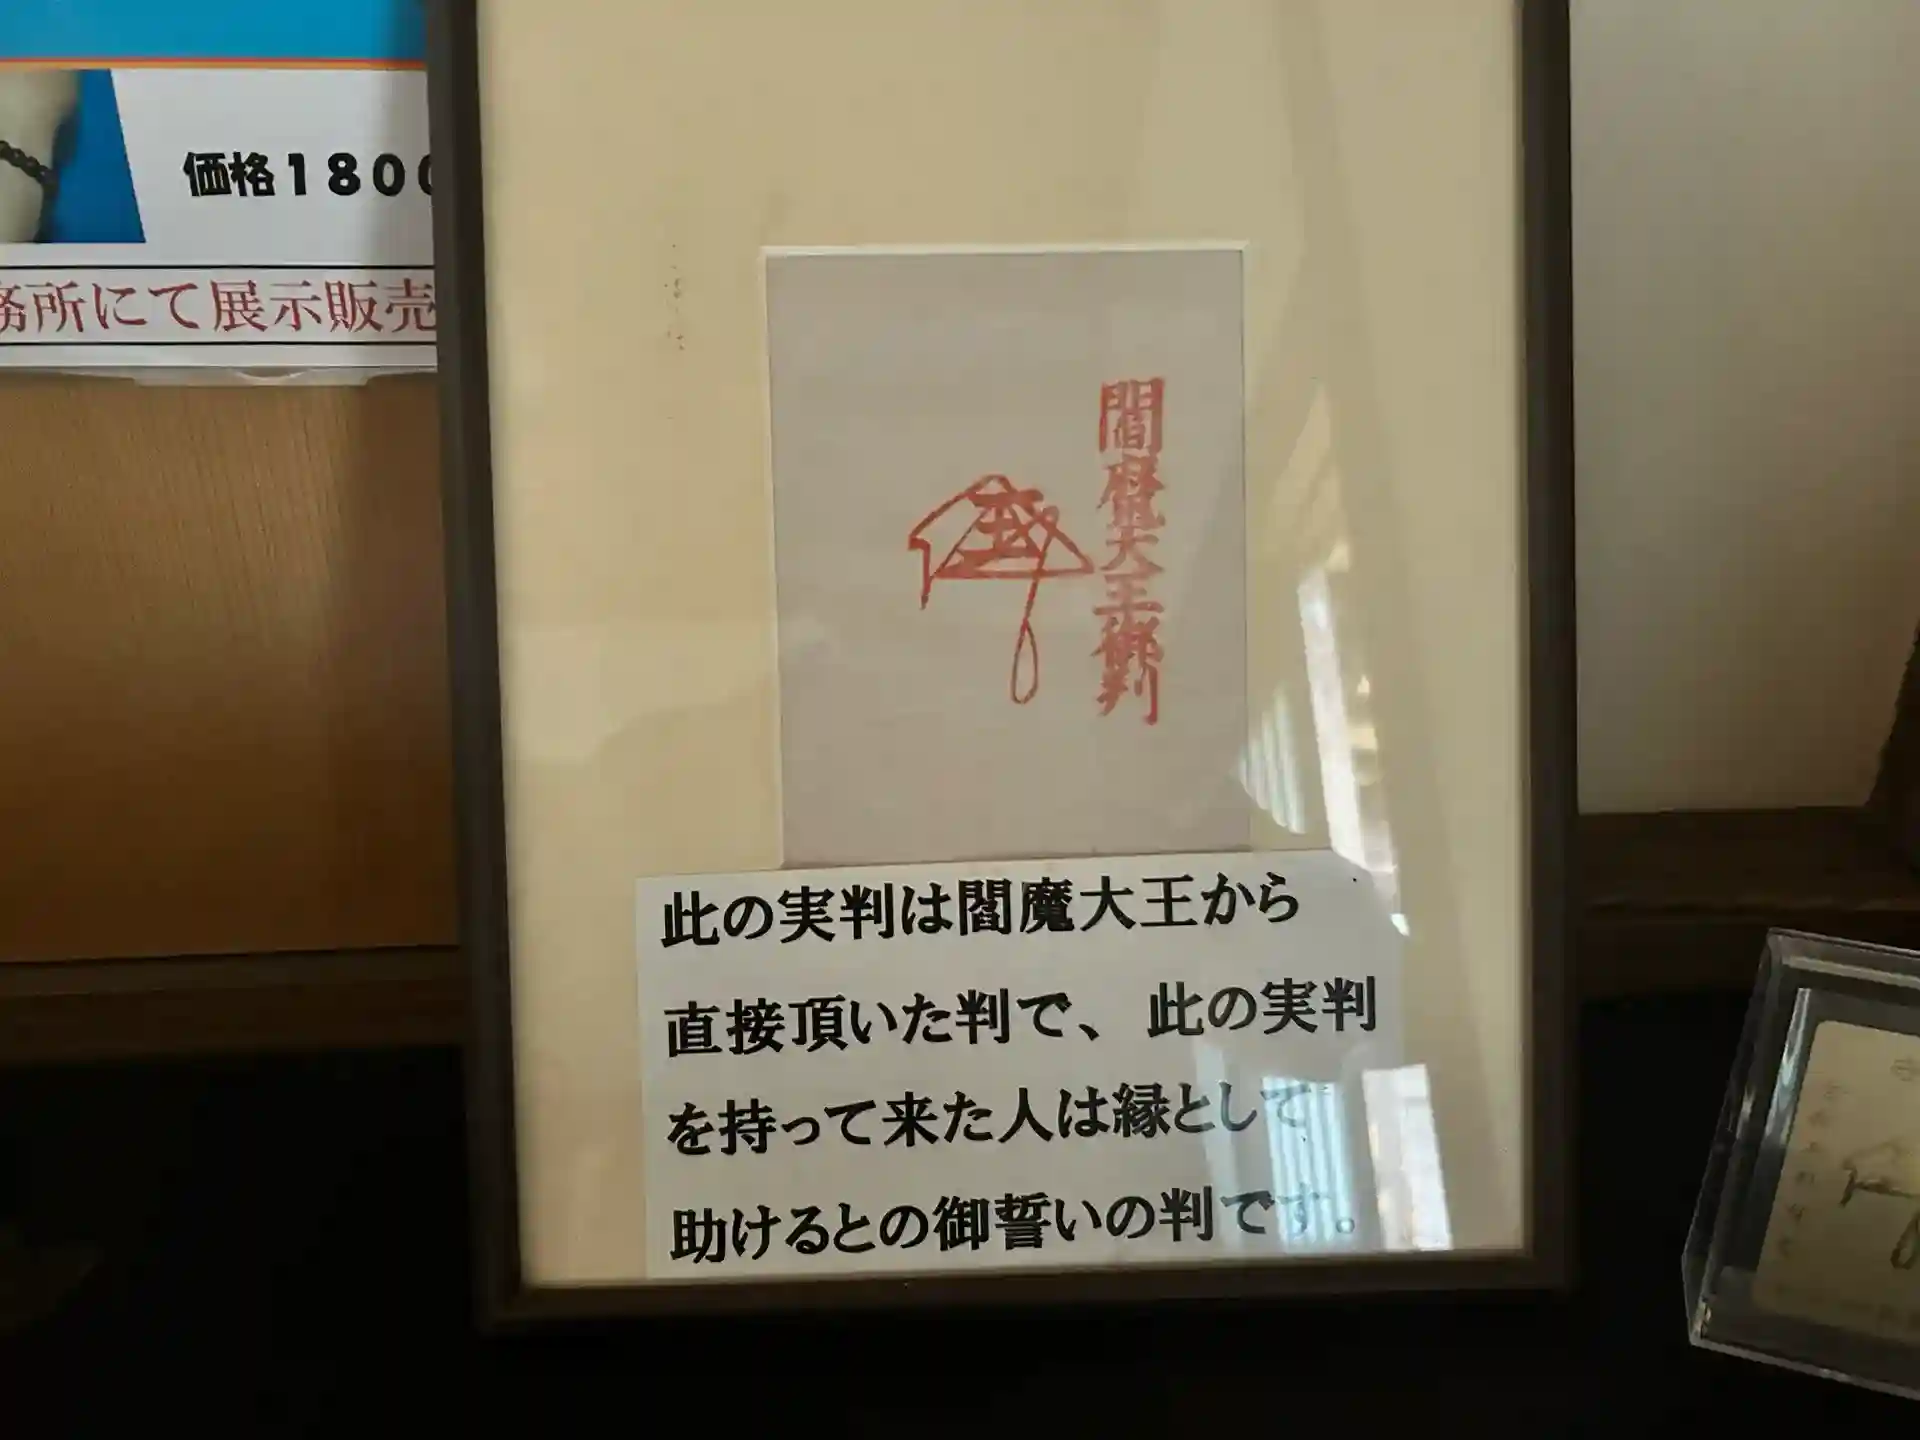 価格1800
務所にて展示販売
閻魔大王御判
此の実判は閻魔大王から
直接頂いた判で、此の実判
を持って来た人は縁として
助けるとの御誓いの判です。